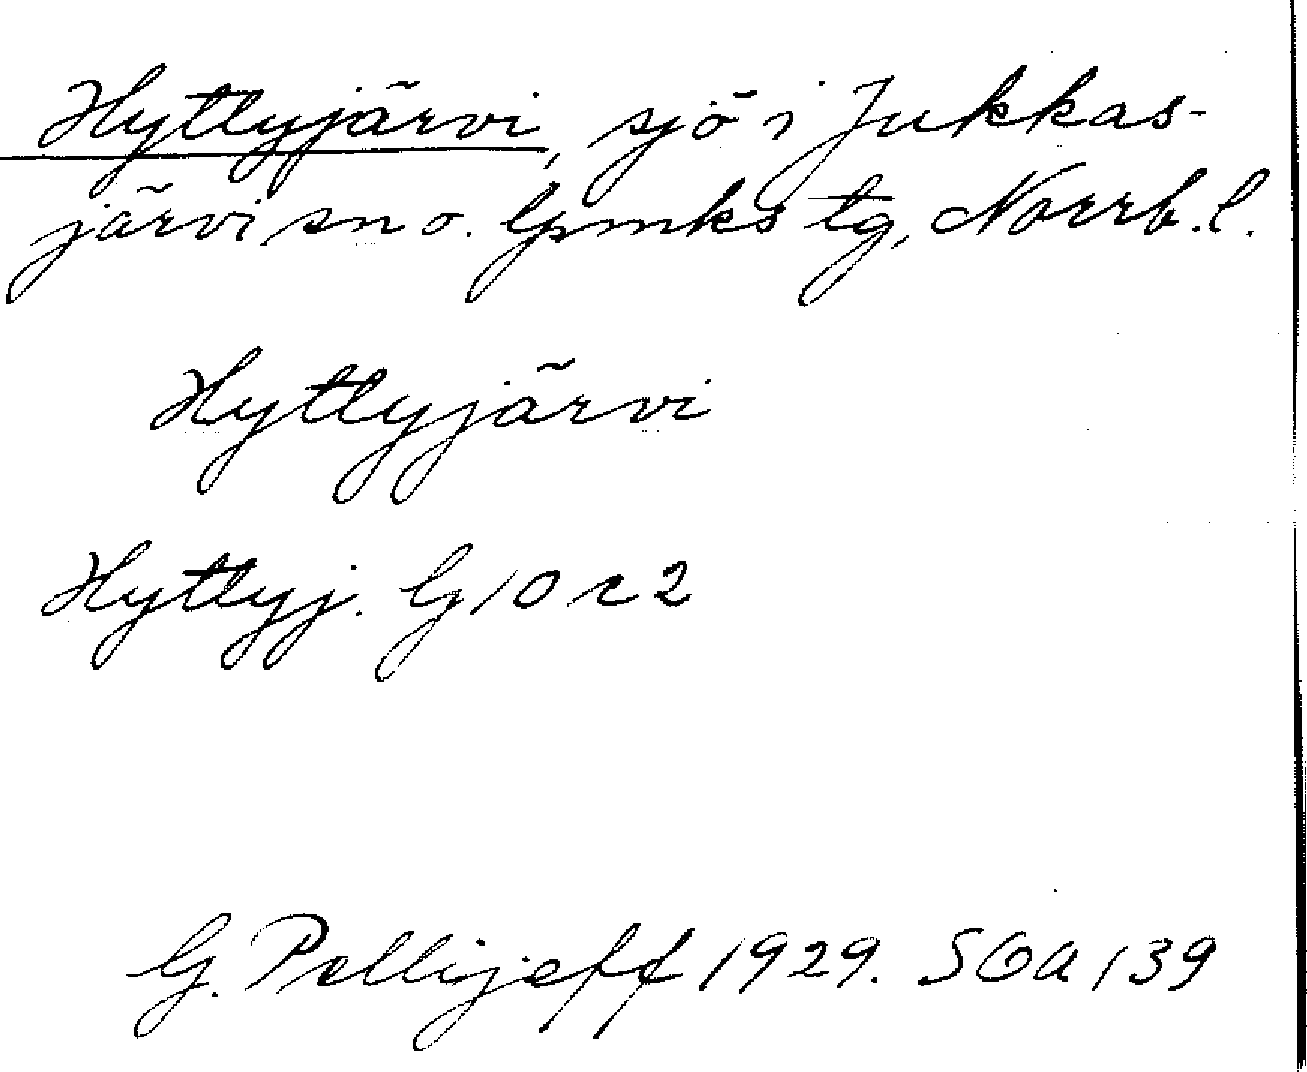 Hyttyjärvi, sjö i Jukkas-
järvi sn o. lpmks tg, Norrb. l.
Hyttyjärvi
Hyttyj. G 10 c 2
G. Pellijeff 1929. SOA 139